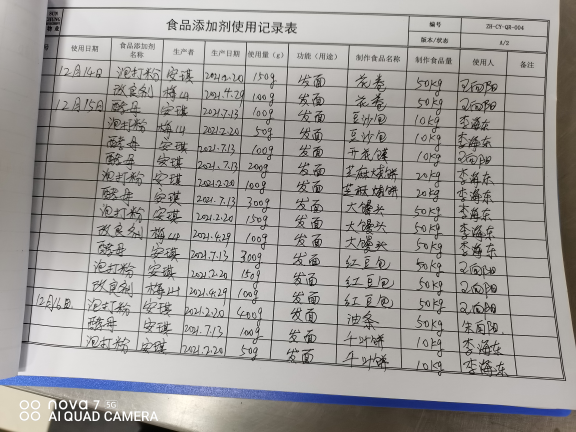 食品添加剂使用记录表
编号 ZH-CY-QR-004
版本/状态 A/2
使用日期 食品添加剂名称 生产者 生产日期 使用量(g) 功能(用途) 制作食品名称 制作食品量 使用人 备注
12月14日 泡打粉 安琪 2021.2.20 150g 发面 花卷 50kg 王向阳
改良剂 梅山 2021.4.29 100g 发面 花卷 50kg 王向阳
12月15日 酵母 安琪 2021.7.13 100g 发面 豆沙包 10kg 李海东
泡打粉 梅山 2021.2.20 50g 发面 豆沙包 10kg 李海东
酵母 安琪 2021.7.13 100g 发面 开花馍 10kg 王向阳
酵母 安琪 2021.7.13 200g 发面 芝麻烧饼 20kg 李海东
泡打粉 安琪 2021.2.20 100g 发面 芝麻烧饼 20kg 李海东
酵母 安琪 2021.7.13 300g 发面 大馒头 50kg 李海东
泡打粉 安琪 2021.2.20 150g 发面 大馒头 50kg 李海东
改良剂 梅山 2021.4.29 100g 发面 大馒头 50kg 李海东
酵母 安琪 2021.7.13 300g 发面 红豆包 50kg 王向阳
泡打粉 安琪 2021.2.20 150g 发面 红豆包 50kg 王向阳
改良剂 梅山 2021.4.29 100g 发面 红豆包 50kg 王向阳
12月16日 泡打粉 安琪 2021.2.20 400g 发面 油条 50kg 朱向阳
酵母 安琪 2021.7.13 100g 发面 千叶饼 10kg 李海东
泡打粉 安琪 2021.2.20 50g 发面 千叶饼 10kg 李海东
nova 7 5G
AI QUAD CAMERA